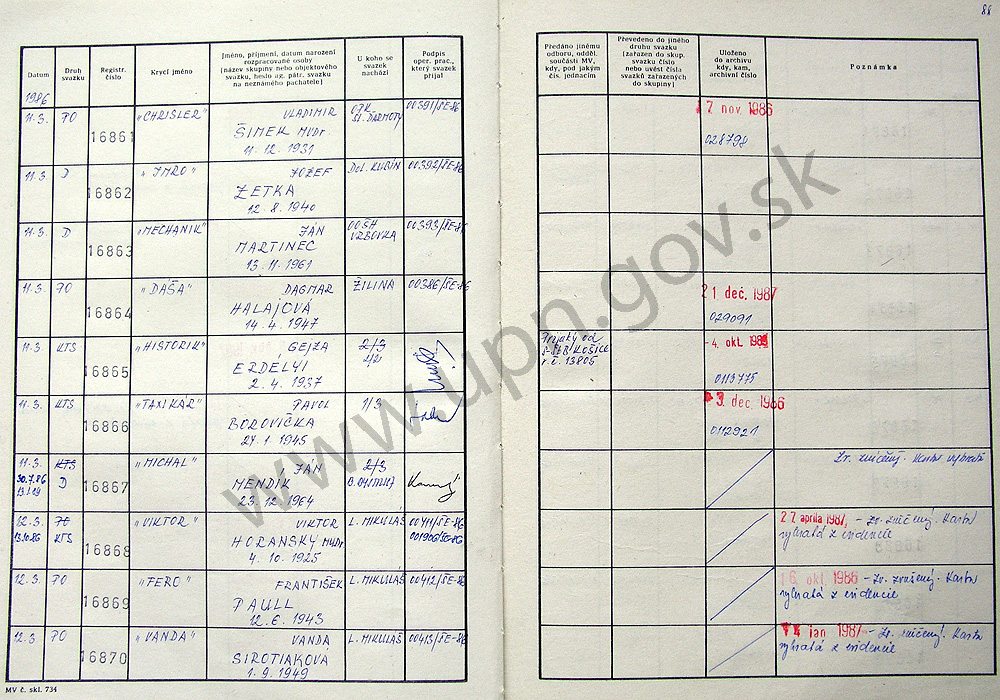 88
Datum
Druh svazku
Registr. číslo
Krycí jméno
Jméno, příjmení, datum narození
rozpracované osoby
(název skupiny nebo objektového
svazku, heslo ag. pátr. svazku
na neznámého pachatele)
U koho se
svazek
nachází
Podpis
oper. prac.,
který svazek
přijal
Předáno jinému
odboru, odděl.
součásti MV,
kdy, pod jakým
čís. jednacím
Převedeno do jiného
druhu svazku
(zařazen do skup.
svazku číslo
nebo uvést čísla
svazků zařazených
do skupiny)
Uloženo
do archivu
kdy, kam,
archivní číslo
Poznámka
1986
11.3. PO 16861 „CHRISLER" VLADIMIR
ŠIMEK MVDr
11.12.1931
00391/ŠE-86
17 nov. 1986
028798
11.3. D 16862 „IMRO" JOZEF
ZETKA
12.8.1940
Dol. KUBÍN 00392/ŠE-86
11.3. D 16863 „MECHANIK" JÁN
MARTINEC
13.11.1961
00393/ŠE-86
11.3. PO 16864 „DAŠA" DAGMAR
HALAJOVÁ
14.4.1947
ŽILINA 00386/ŠE-86
21 dec. 1987
029091
11.3. KTS 16865 „HISTORIK" GEJZA
ERDÉLYI
2.4.1937
2/3
Prijatý od
KOŠICE
r.č. 13805
-4. okt.
0113775
11.3. KTS 16866 „TAXIKÁR" PAVOL
BOROVIČKA
27.1.1945
1/3
3. dec. 1986
0112921
11.3. KTS 16867 „MICHAL" JÁN
30.7.86 D
MENDÍK
23.12.1964
2/3
Zv. zničený. Karta vybratá
12.3. PO 16868 „VIKTOR" VIKTOR
13.10.86 KTS
HORANSKÝ MUDr
4.10.1925
L. MIKULÁŠ 00411/ŠE-86
27. apríla 1987, - Zv. zničený. Karta
vybratá z evidencie
12.3. PO 16869 „FERO" FRANTIŠEK
PAULL
12.6.1943
L. MIKULÁŠ 00412/ŠE-86
16. okt. 1986 - Zv. zničený. Karta
vybratá z evidencie
12.3 PO 16870 „VANDA" VANDA
SIROTIAKOVÁ
1.9.1949
L. MIKULÁŠ 00413/ŠE-86
14 jan 1987 - Zv. zničený. Karta
vybratá z evidencie
MV č. skl. 734
www.upn.gov.sk